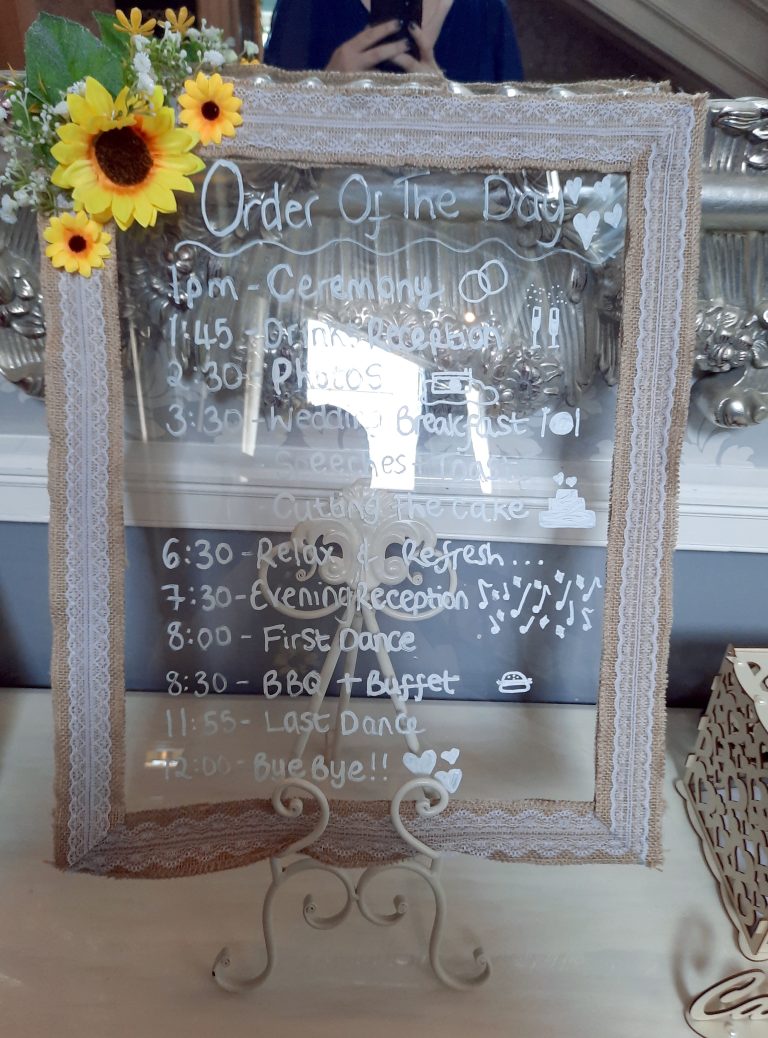 Order Of The Day
1pm - Ceremony
1:45 - Drinks Reception
2:30 - Photos
3:30 - Wedding Breakfast
Speeches +
Cutting The Cake
6:30 - Relax & Refresh...
7:30 - Evening Reception
8:00 - First Dance
8:30 - BBQ + Buffet
11:55 - Last Dance
12:00 - Bye Bye!!
Ca